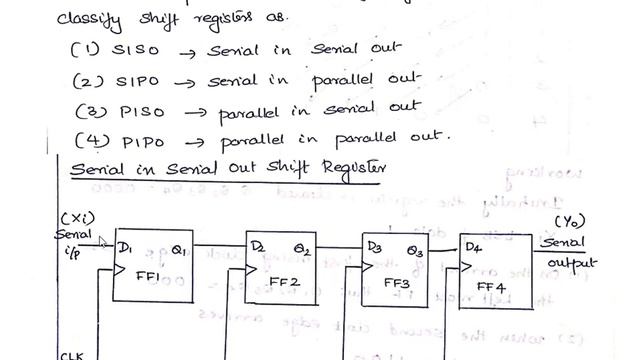 classify shift registers as.
(1) SISO → Serial in Serial out
(2) SIPO → Serial in parallel out
(3) PISO → parallel in Serial out
(4) PIPO → parallel in parallel out.
Serial in Serial Out Shift Register
(Xi)
Serial
i/p
D1 Q1
FF1
D2 Q2
FF2
D3 Q3
FF3
D4
FF4
(Yo)
Serial
output
CLK